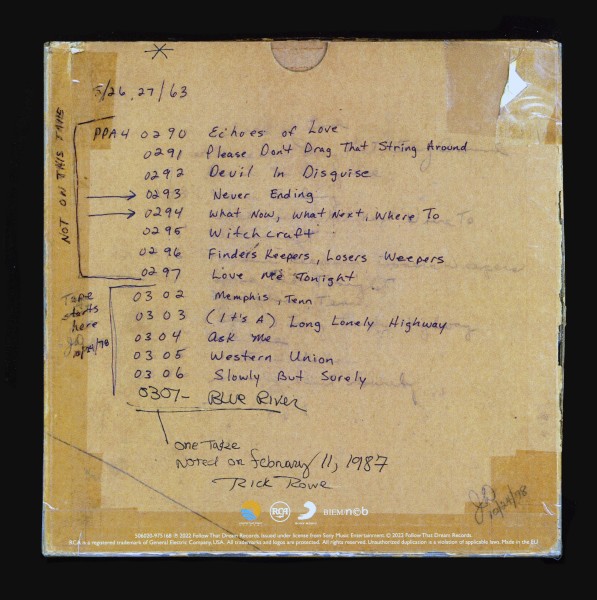 5/26, 27/63
NOT ON THIS TAPE
PPA4 0290 Echoes of Love
0291 Please Don't Drag That String Around
0292 Devil In Disguise
→ 0293 Never Ending
→ 0294 What Now, What Next, Where To
0295 Witchcraft
0296 Finders Keepers, Losers Weepers
0297 Love Me Tonight
Tape starts here
10/24/78
0302 Memphis, Tenn
0303 (It's A) Long Lonely Highway
0304 Ask Me
0305 Western Union
0306 Slowly But Surely
0307- Blue River
one Take
Noted on february 11, 1987
Rick Rowe
10/24/78
RCA
BIEM/n©b
506020-975168 ℗ 2022 Follow That Dream Records. Issued under license from Sony Music Entertainment. © 2022 Follow That Dream Records.
RCA is a registered trademark of General Electric Company, USA. All trademarks and logos are protected. All rights reserved. Unauthorized duplication is a violation of applicable laws. Made in the EU